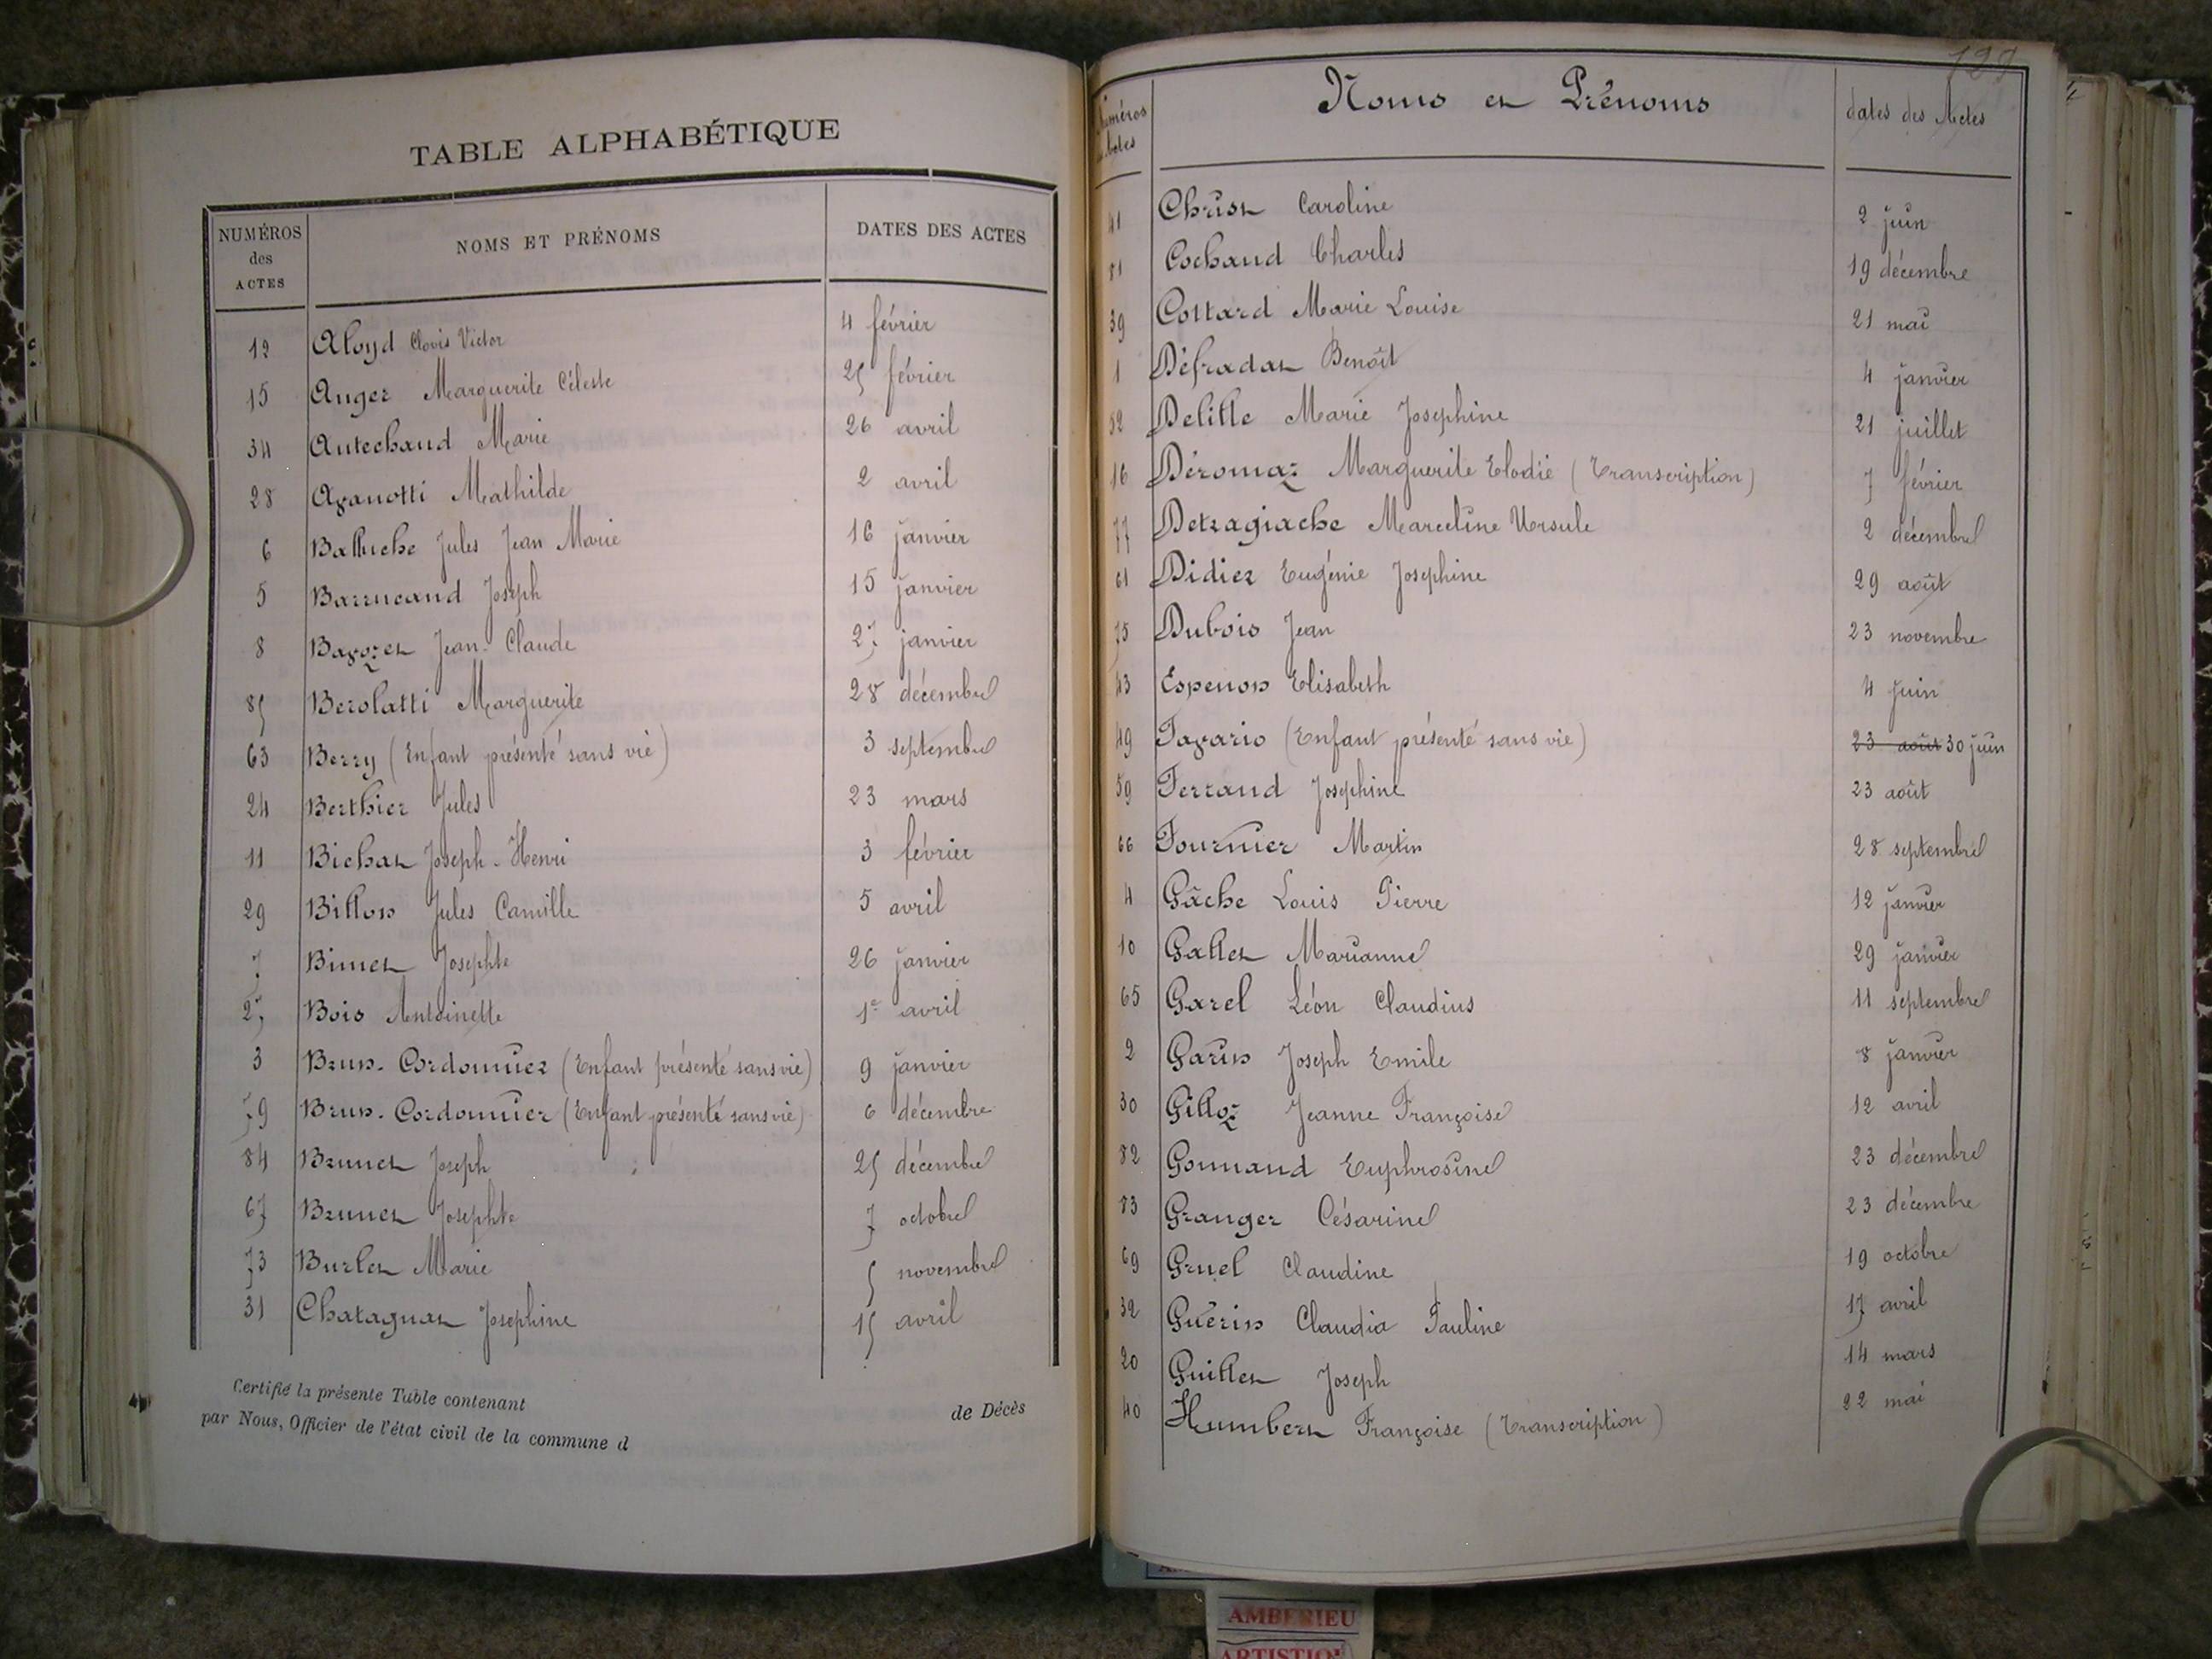 TABLE ALPHABÉTIQUE
NUMÉROS des ACTES NOMS ET PRÉNOMS DATES DES ACTES
12 Aloyd Clovis Victor 4 février
15 Auger Marguerite Céleste 25 février
34 Autechaud Marie 26 avril
28 Avanotti Mathilde 2 avril
6 Balluche Jules Jean Marie 16 janvier
5 Barrucand Joseph 15 janvier
8 Bavozet Jean-Claude 27 janvier
85 Berolatti Marguerite 28 décembre
63 Berry (Enfant présenté sans vie) 3 septembre
24 Berthier Jules 23 mars
11 Bichat Joseph-Henri 3 février
29 Billon Jules Camille 5 avril
7 Binet Josephte 26 janvier
27 Bois Antoinette 1er avril
3 Brun-Cordonnier (Enfant présenté sans vie) 9 janvier
79 Brun-Cordonnier (Enfant présenté sans vie) 6 décembre
84 Brunet Joseph 25 décembre
67 Brunet Josephte 7 octobre
73 Burlet Marie 5 novembre
31 Chatagnat Josephine 15 avril
Certifié la présente Table contenant de Décès
par Nous, Officier de l'état civil de la commune d
127
Numéros des Actes Noms et Prénoms dates des Actes
41 Christ Caroline 2 juin
81 Cochaud Charles 19 décembre
39 Cottard Marie Louise 21 mai
1 Défradat Benoît 4 janvier
52 Delille Marie Josephine 21 juillet
16 Déromaz Marguerite Elodie (Transcription) 7 février
77 Detragiache Marceline Ursule 2 décembre
61 Didier Eugénie Josephine 29 août
75 Dubois Jean 23 novembre
43 Espenon Elisabeth 4 juin
49 Favario (Enfant présenté sans vie) 23 août 30 juin
59 Ferrand Josephine 23 août
66 Fournier Martin 28 septembre
4 Gâche Louis Pierre 12 janvier
10 Gallet Marianne 29 janvier
65 Garel Léon Claudius 11 septembre
2 Garin Joseph Emile 8 janvier
30 Gilloz Jeanne Françoise 12 avril
82 Gonnand Euphrosine 23 décembre
83 Granger Césarine 23 décembre
69 Gruel Claudine 19 octobre
32 Guérin Claudia Pauline 17 avril
20 Guillet Joseph 14 mars
40 Humbert Françoise (Transcription) 22 mai
AMBERIEU